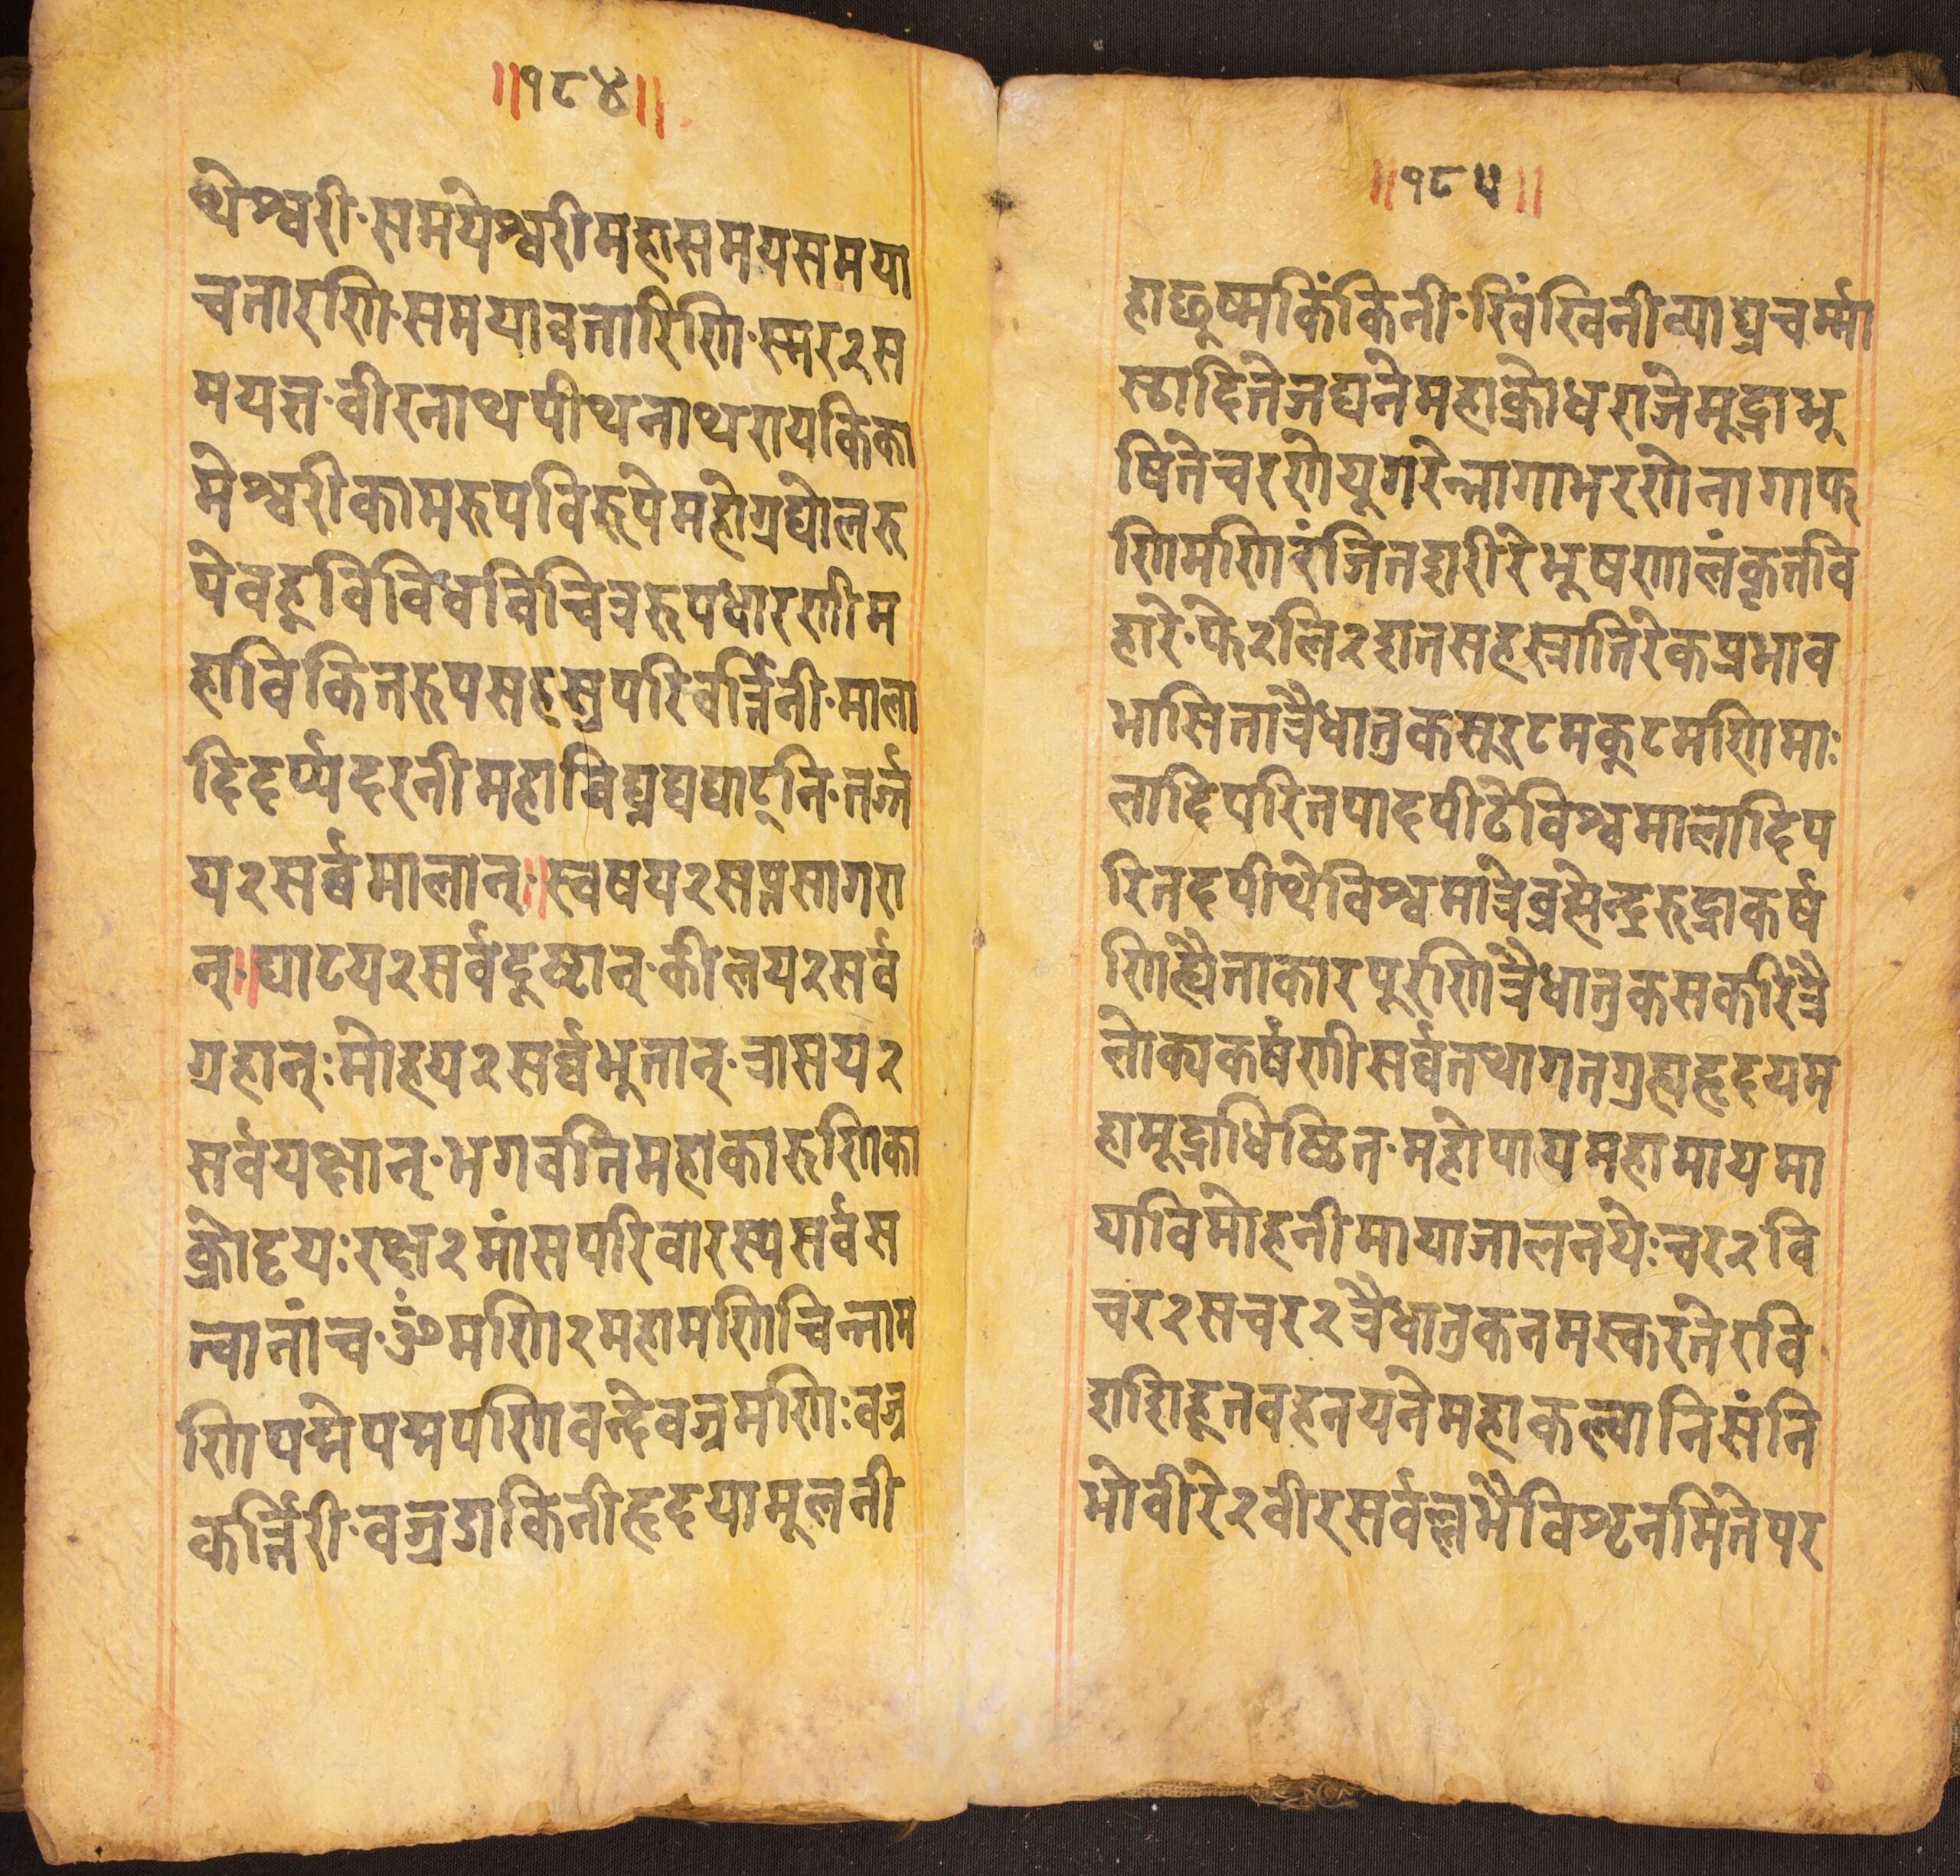 ॥१८४॥
थेश्वरी·समयेश्वरीमहासमयसमया
वतारणि·समयावतारिणि·स्मर२स
मयत्त·वीरनाथपीथनाथरायकिका
मेश्वरीकामरुपविरूपेमहोग्रघोलरु
पेवहूविविधविचित्ररुपधारणीम
हाविकितरुपसहस्रपरिवर्त्तिनी·माला
दिदर्प्पदरनीमहाविघ्नघघाट्नि·तर्ज्ज
य२सर्व्वमालान्·॥स्वषय२सप्तसागरा
न्·॥घाटय२सर्वदूष्टान्·कीलय२सर्व
ग्रहान्ः मोहय२सर्व्वभुतान्·त्रासय२
सर्वयक्षान्·भगवतिमहाकारुणिका
क्रोदृयःरक्ष२मांसपरिवारस्यसर्वस
त्वानांच·ॐमणि२महामणिचिन्ताम
णिपद्मेपद्मपणिवन्देवज्रमणिःवज्र
कर्त्तिरी·वज्रडाकिनीहृदयामूलनी
॥१८५॥
हाछूष्मकिंकिनी·खिंखिनीव्याघ्रचर्म्मा
स्टादितेजघनेमहाक्रोधराजेमूद्राभू
षितेचरणेयूगरेन्नागाभरणेनागाफ
णिमणिरंजितशरीरेभूषणालंकृतवि
हारे·फे२लि२शतसहस्रातिरेकप्रभाव
भासितात्रैधातुकसूरटमकूटमणिमाः
लादिपरितपादपीटेविश्वमालादिप
रितदपीथेविश्वमात्रेब्रह्मेन्द्ररुद्राकर्ष
णिह्यैताकारपूरणित्रैधातुकसकरित्रै
लोक्यकर्षणीसर्व्वतथागतगुह्यहृदयम
हामूद्राधिष्ठित·महोपायमहामायमा
याविमोहनीमायाजालनयेःचर२वि
चर२सचर२त्रैधातुकनमस्करतेरवि
शशिहूतवहनयनेमहाकल्पानिसंनि
भोवीरे२वीरसर्वल्लभैविश्टनमितेपर